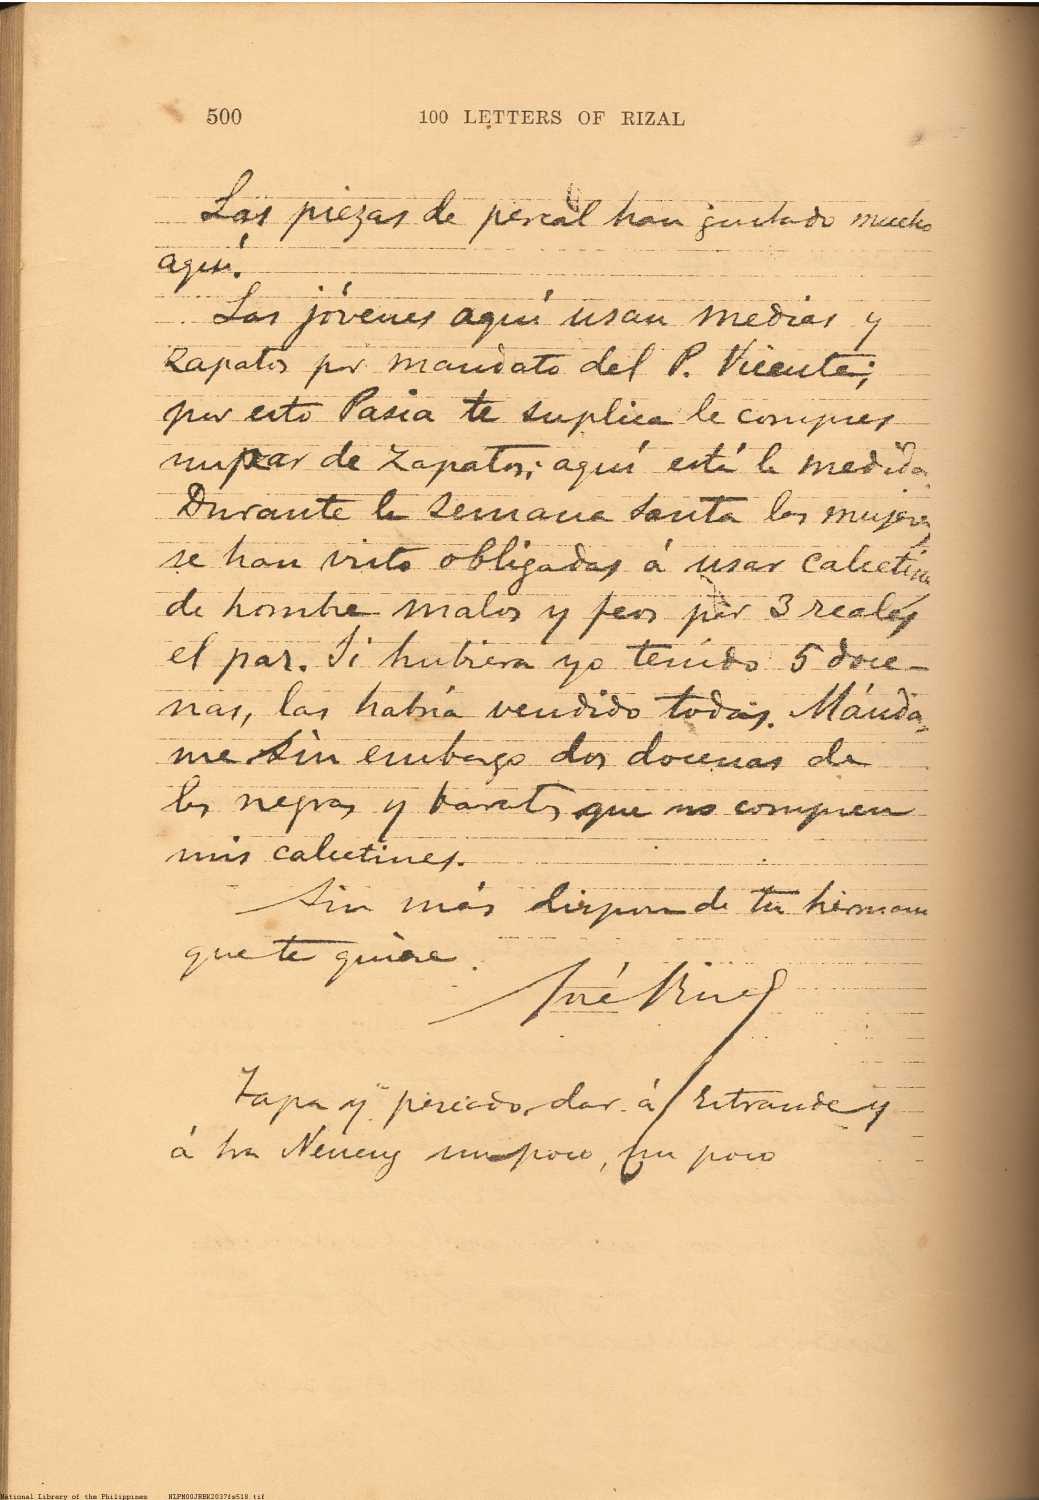 500
100 LETTERS OF RIZAL
Las piezas de percal han gustado mucho
aquí.
Las jóvenes aquí usan medias y
zapatos por mandato del P. Vicente;
por esto Pasia te suplica le compres
un par de zapatos; aquí está la medida.
Durante la semana santa las mujeres
se han visto obligadas á usar calcetines
de hombre malos y feos por 3 reales
el par. Si hubiera yo tenido 5 doce-
nas, las habría vendido todas. Mánda
me sin embargo dos docenas de
los negros y baratos que no compren
mis calcetines.
Sin más dispon de tu hermano
que te quiere.
José Rizal
Tapa y pescado, dar á Estrande y
á la Neneng un poco, un poco
National Library of the Philippines